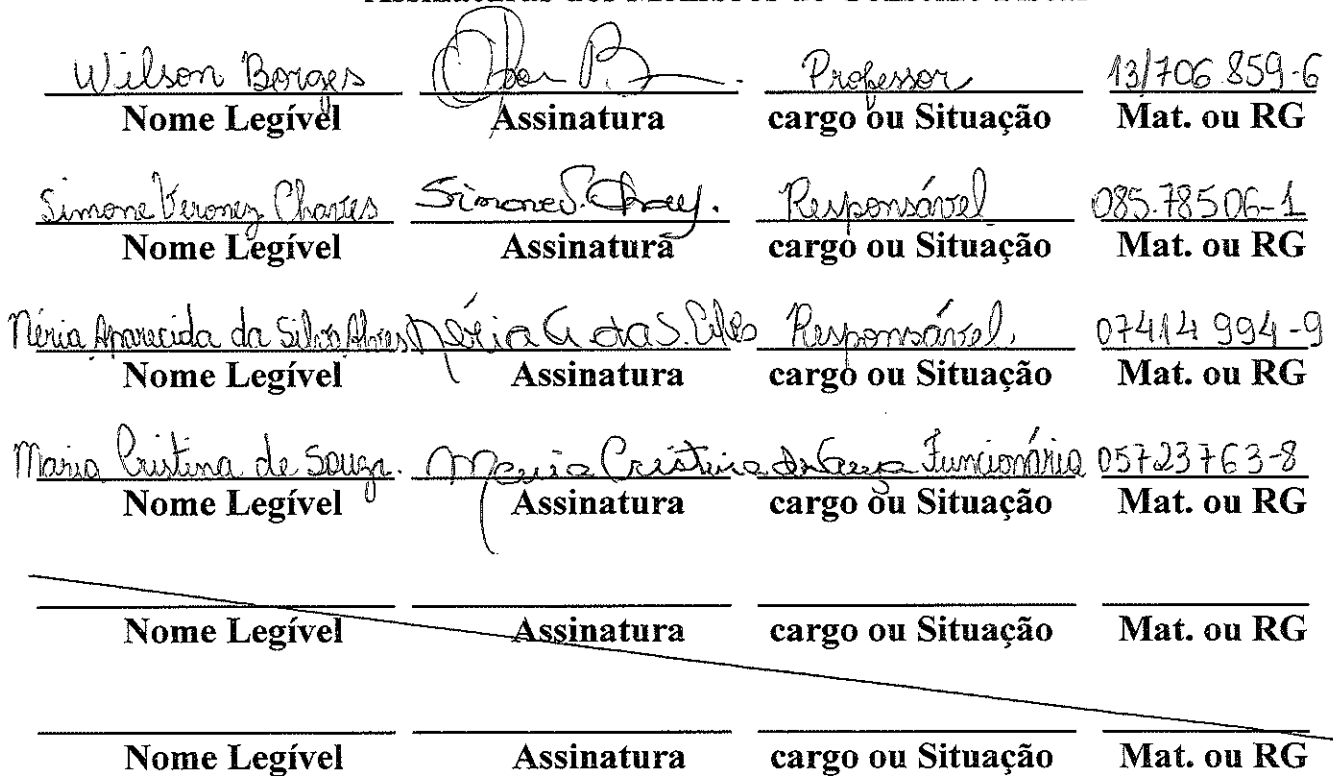 Wilson Borges Professor 13/706.859-6
Nome Legível Assinatura cargo ou Situação Mat. ou RG
Simone Veronez Chaves Simone V. Chaves. Responsável 085.78506-1
Nome Legível Assinatura cargo ou Situação Mat. ou RG
Néria Aparecida da Silva Alves Néria A da S. Alves Responsável. 07414 994-9
Nome Legível Assinatura cargo ou Situação Mat. ou RG
Maria Cristina de Souza. Maria Cristina de Souza Funcionária 05723763-8
Nome Legível Assinatura cargo ou Situação Mat. ou RG
Nome Legível Assinatura cargo ou Situação Mat. ou RG
Nome Legível Assinatura cargo ou Situação Mat. ou RG